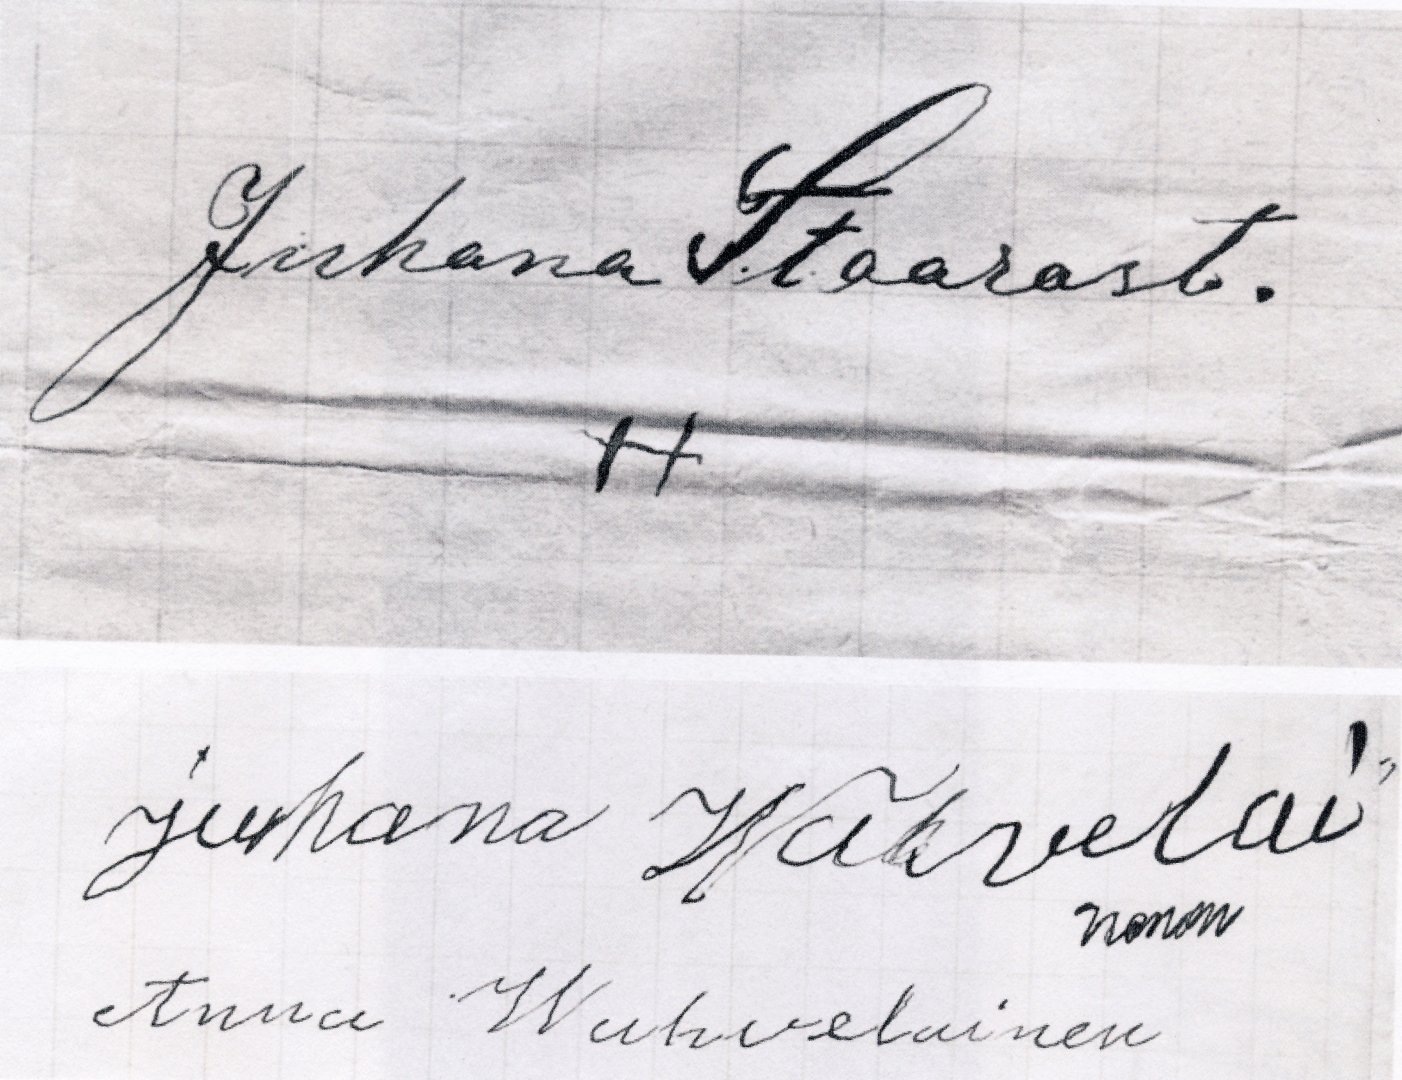 Juhana Staarast.
H
juhana Wahvelai
nonon
Anna Wahvelainen